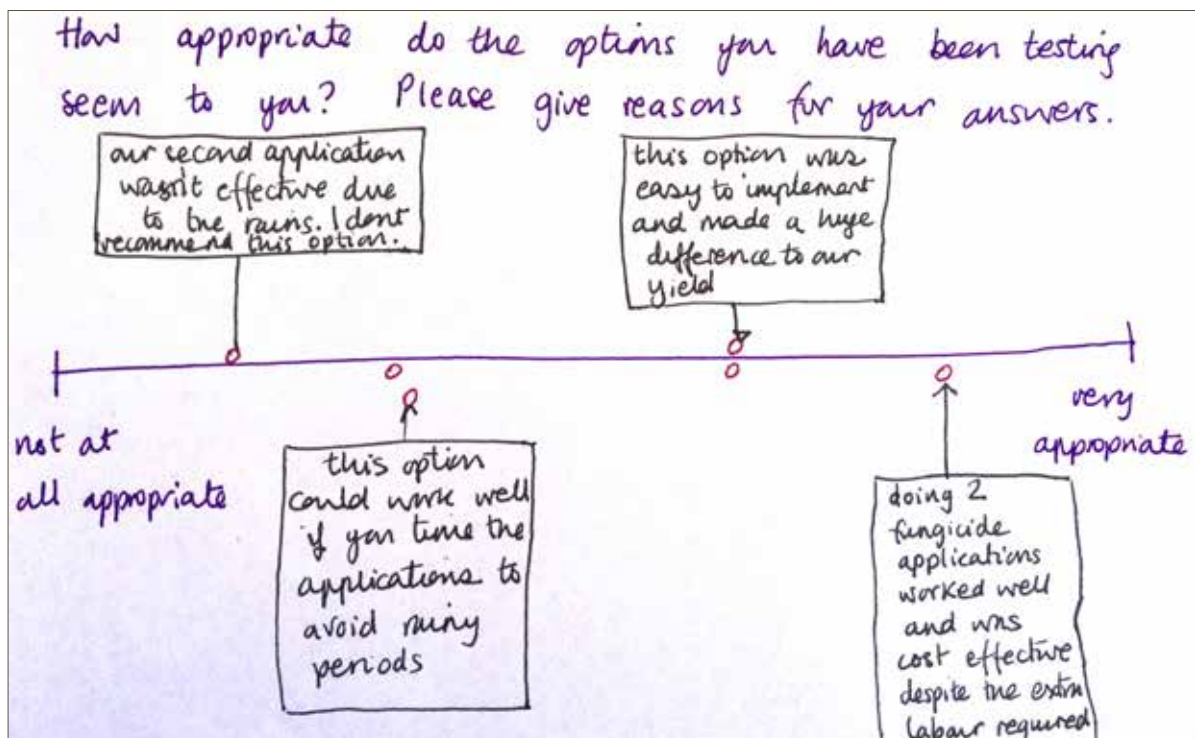 How appropriate do the options you have been testing
seem to you? Please give reasons for your answers.
our second application
wasn't effective due
to the rains. I dont
recommend this option.
this option was
easy to implement
and made a huge
difference to our
yield
not at
all appropriate
very
appropriate
this option
could work well
if you time the
applications to
avoid rainy
periods
doing 2
fungicide
applications
worked well
and was
cost effective
despite the extra
labour required